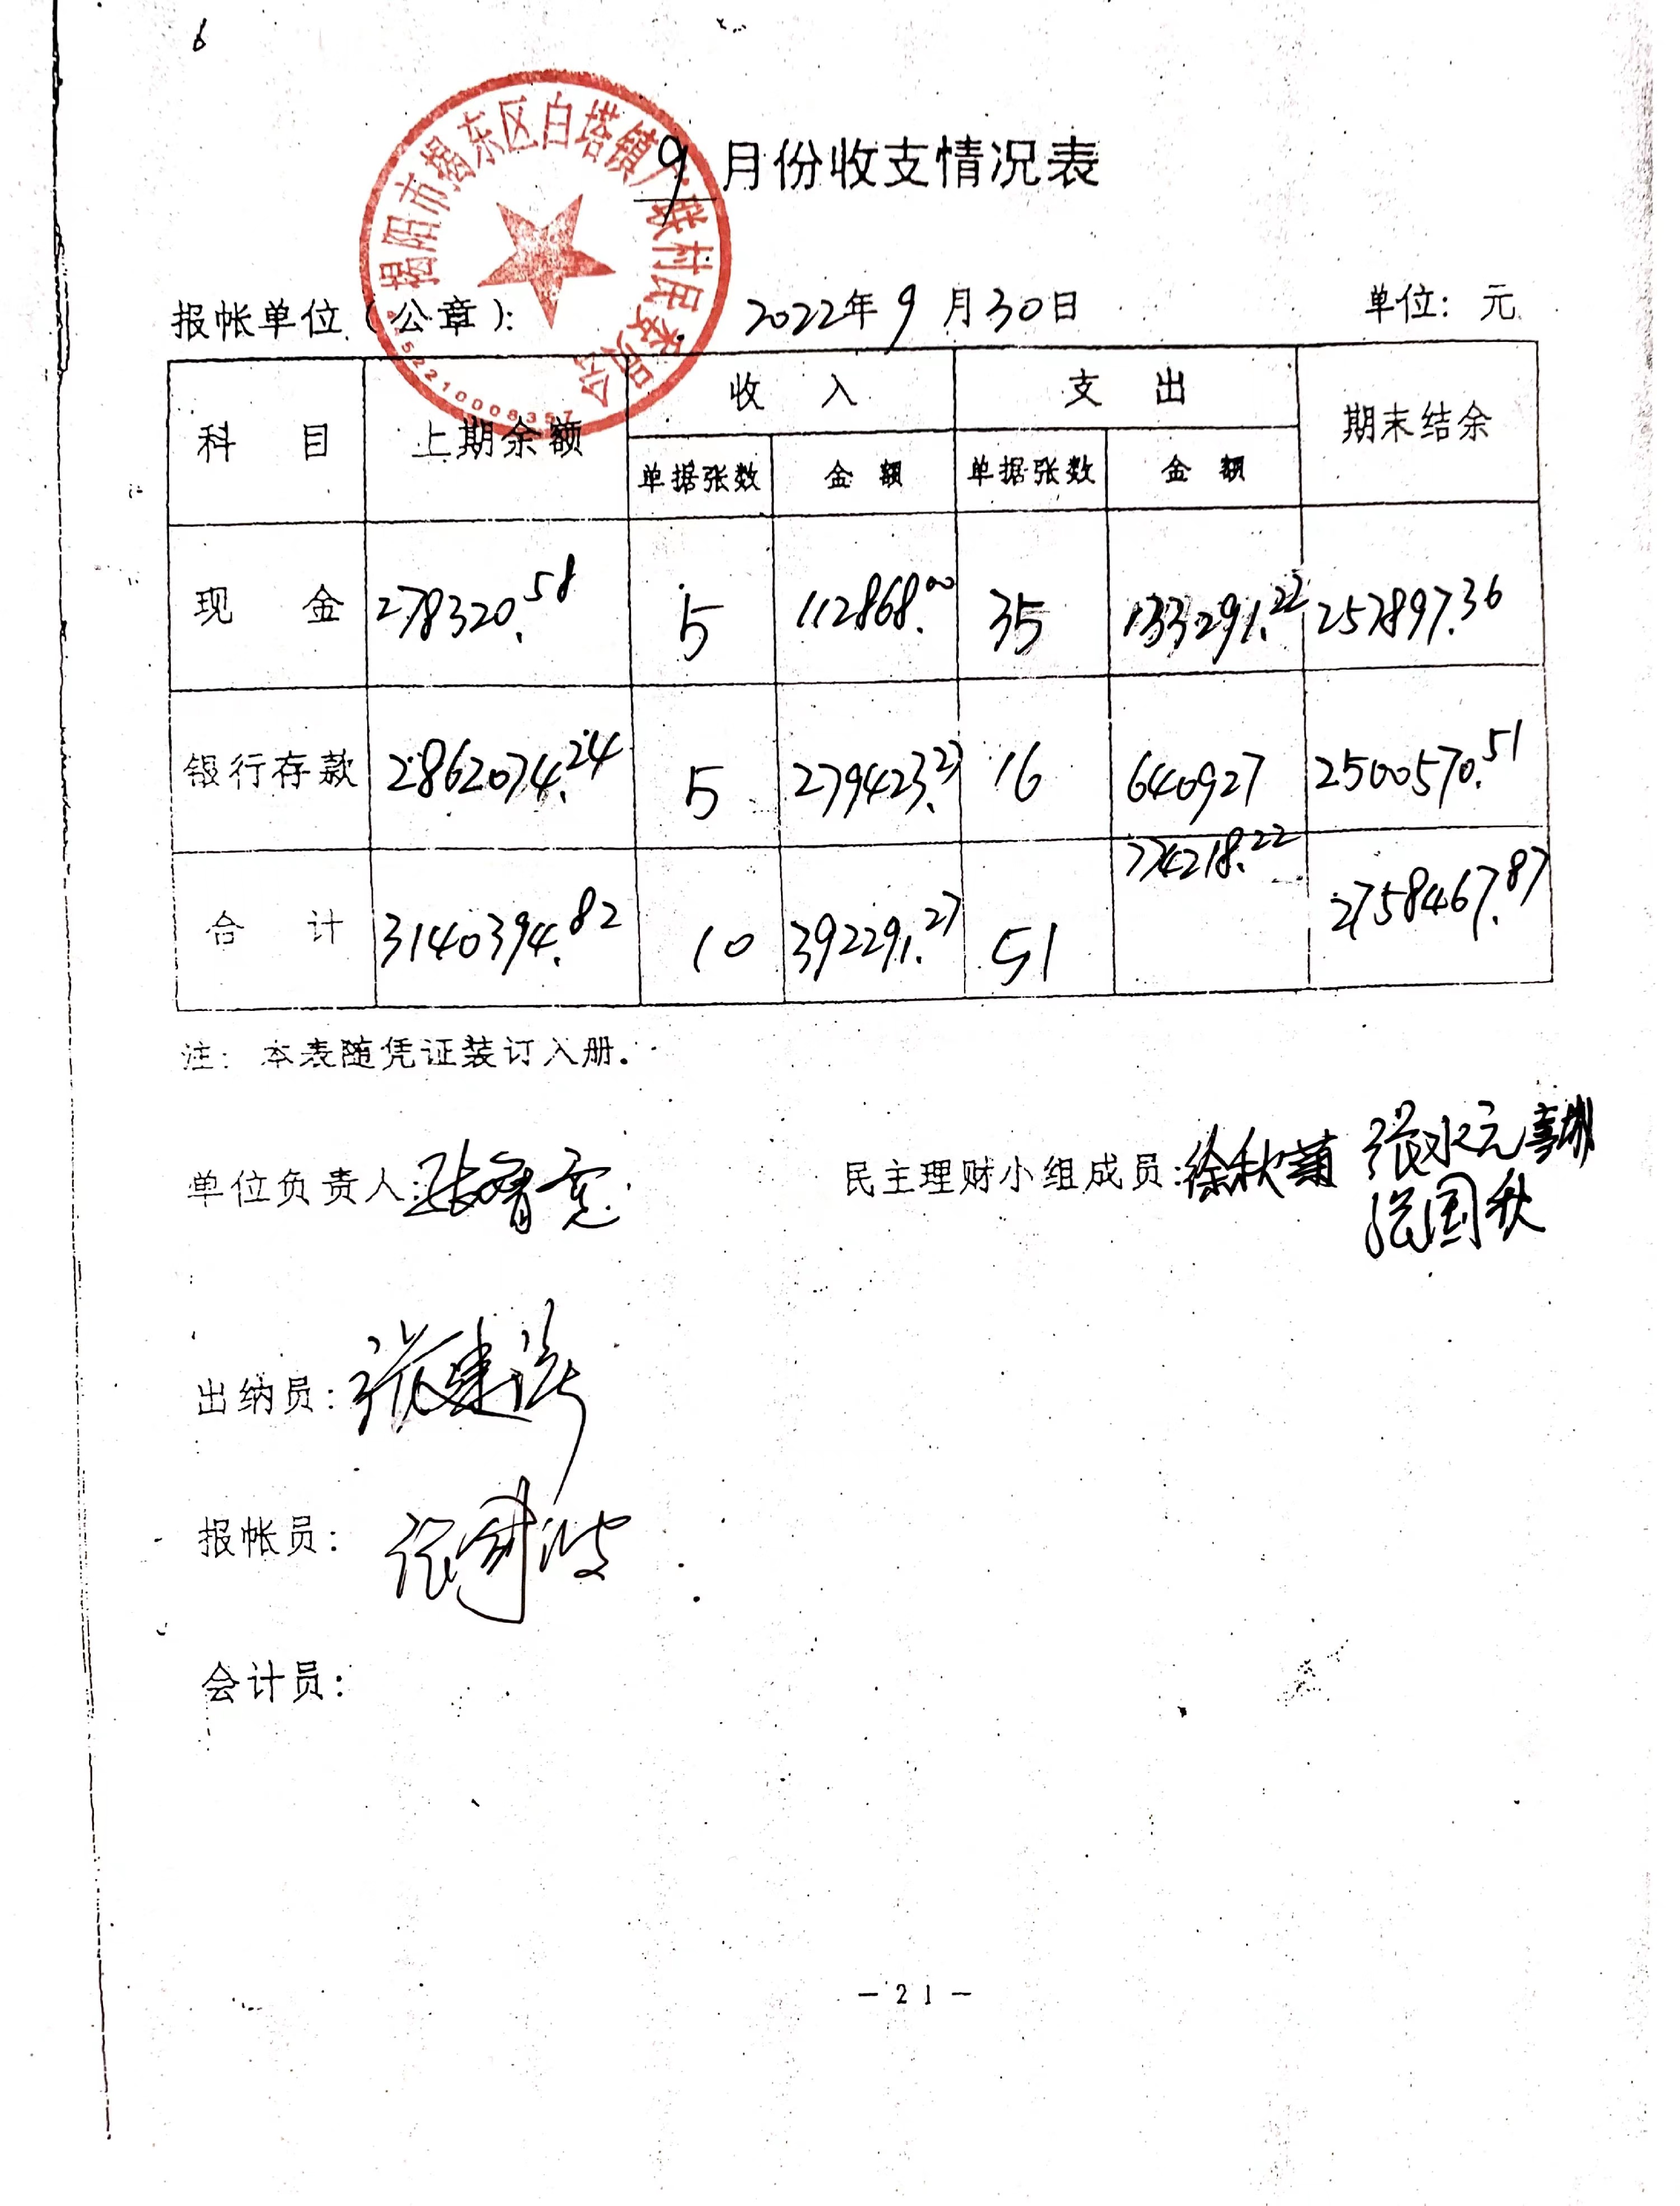 6
揭阳市揭东区白塔镇广联村民委员会
4452210008357
9月份收支情况表
报帐单位(公章): 2022年9月30日 单位: 元
科目 上期余额 收入 支出 期末结余
单据张数 金额 单据张数 金额
现金 278320.58 5 112868.00 35 133291.22 257897.36
银行存款 2862074.24 5 279423.27 16 640927 2500570.51
合计 3140394.82 10 392291.27 51 774218.22 2758467.87
注: 本表随凭证装订入册.
单位负责人: 民主理财小组成员: 徐秋菊 张水元
张国秋
出纳员: 张建
报帐员:
会计员:
-21-